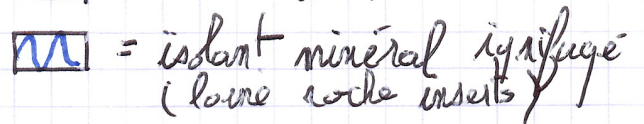 = isolant minéral ignifugé
(laine roche inserts)